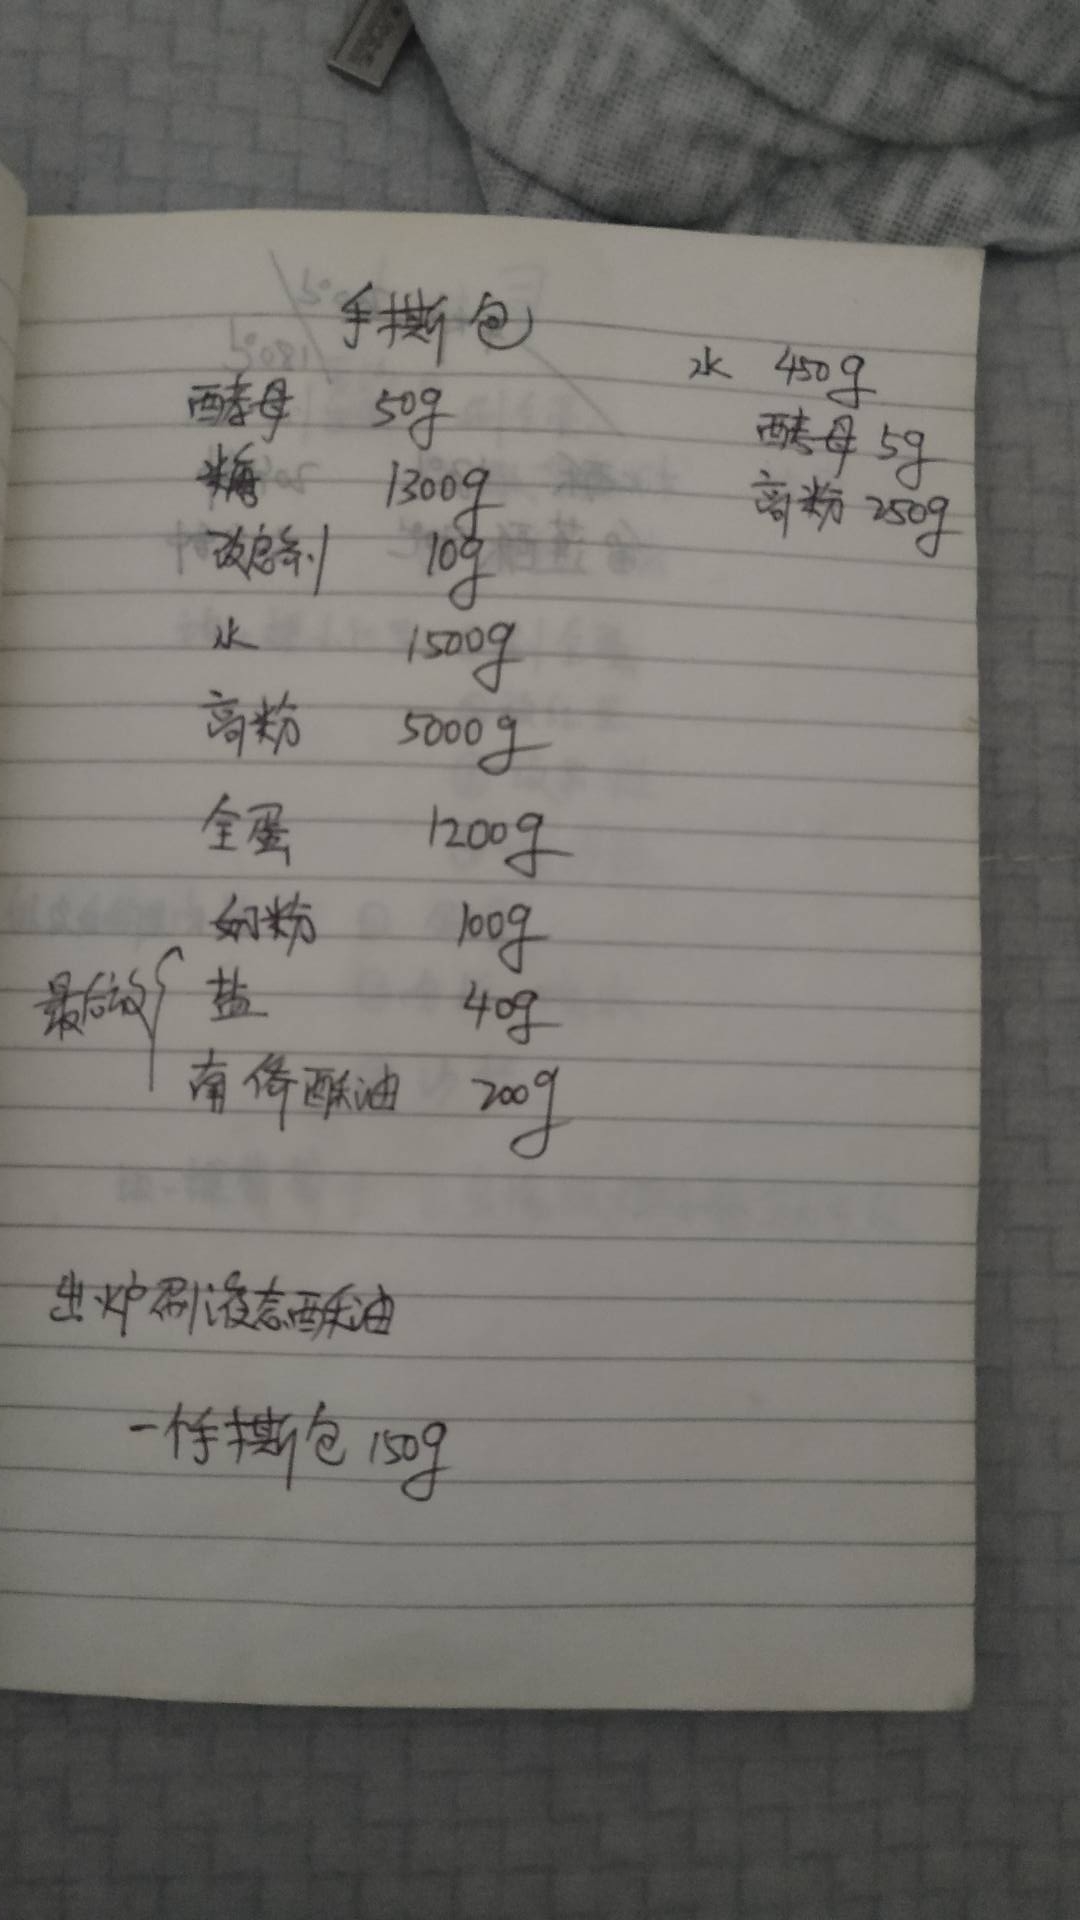 手撕包
酵母 50g
糖 1300g
改良剂 10g
水 1500g
高粉 5000g
全蛋 1200g
奶粉 100g
最后放
盐 40g
南侨酥油 200g
水 450g
酵母 5g
高粉 250g
出炉刷液态酥油
一个手撕包 150g